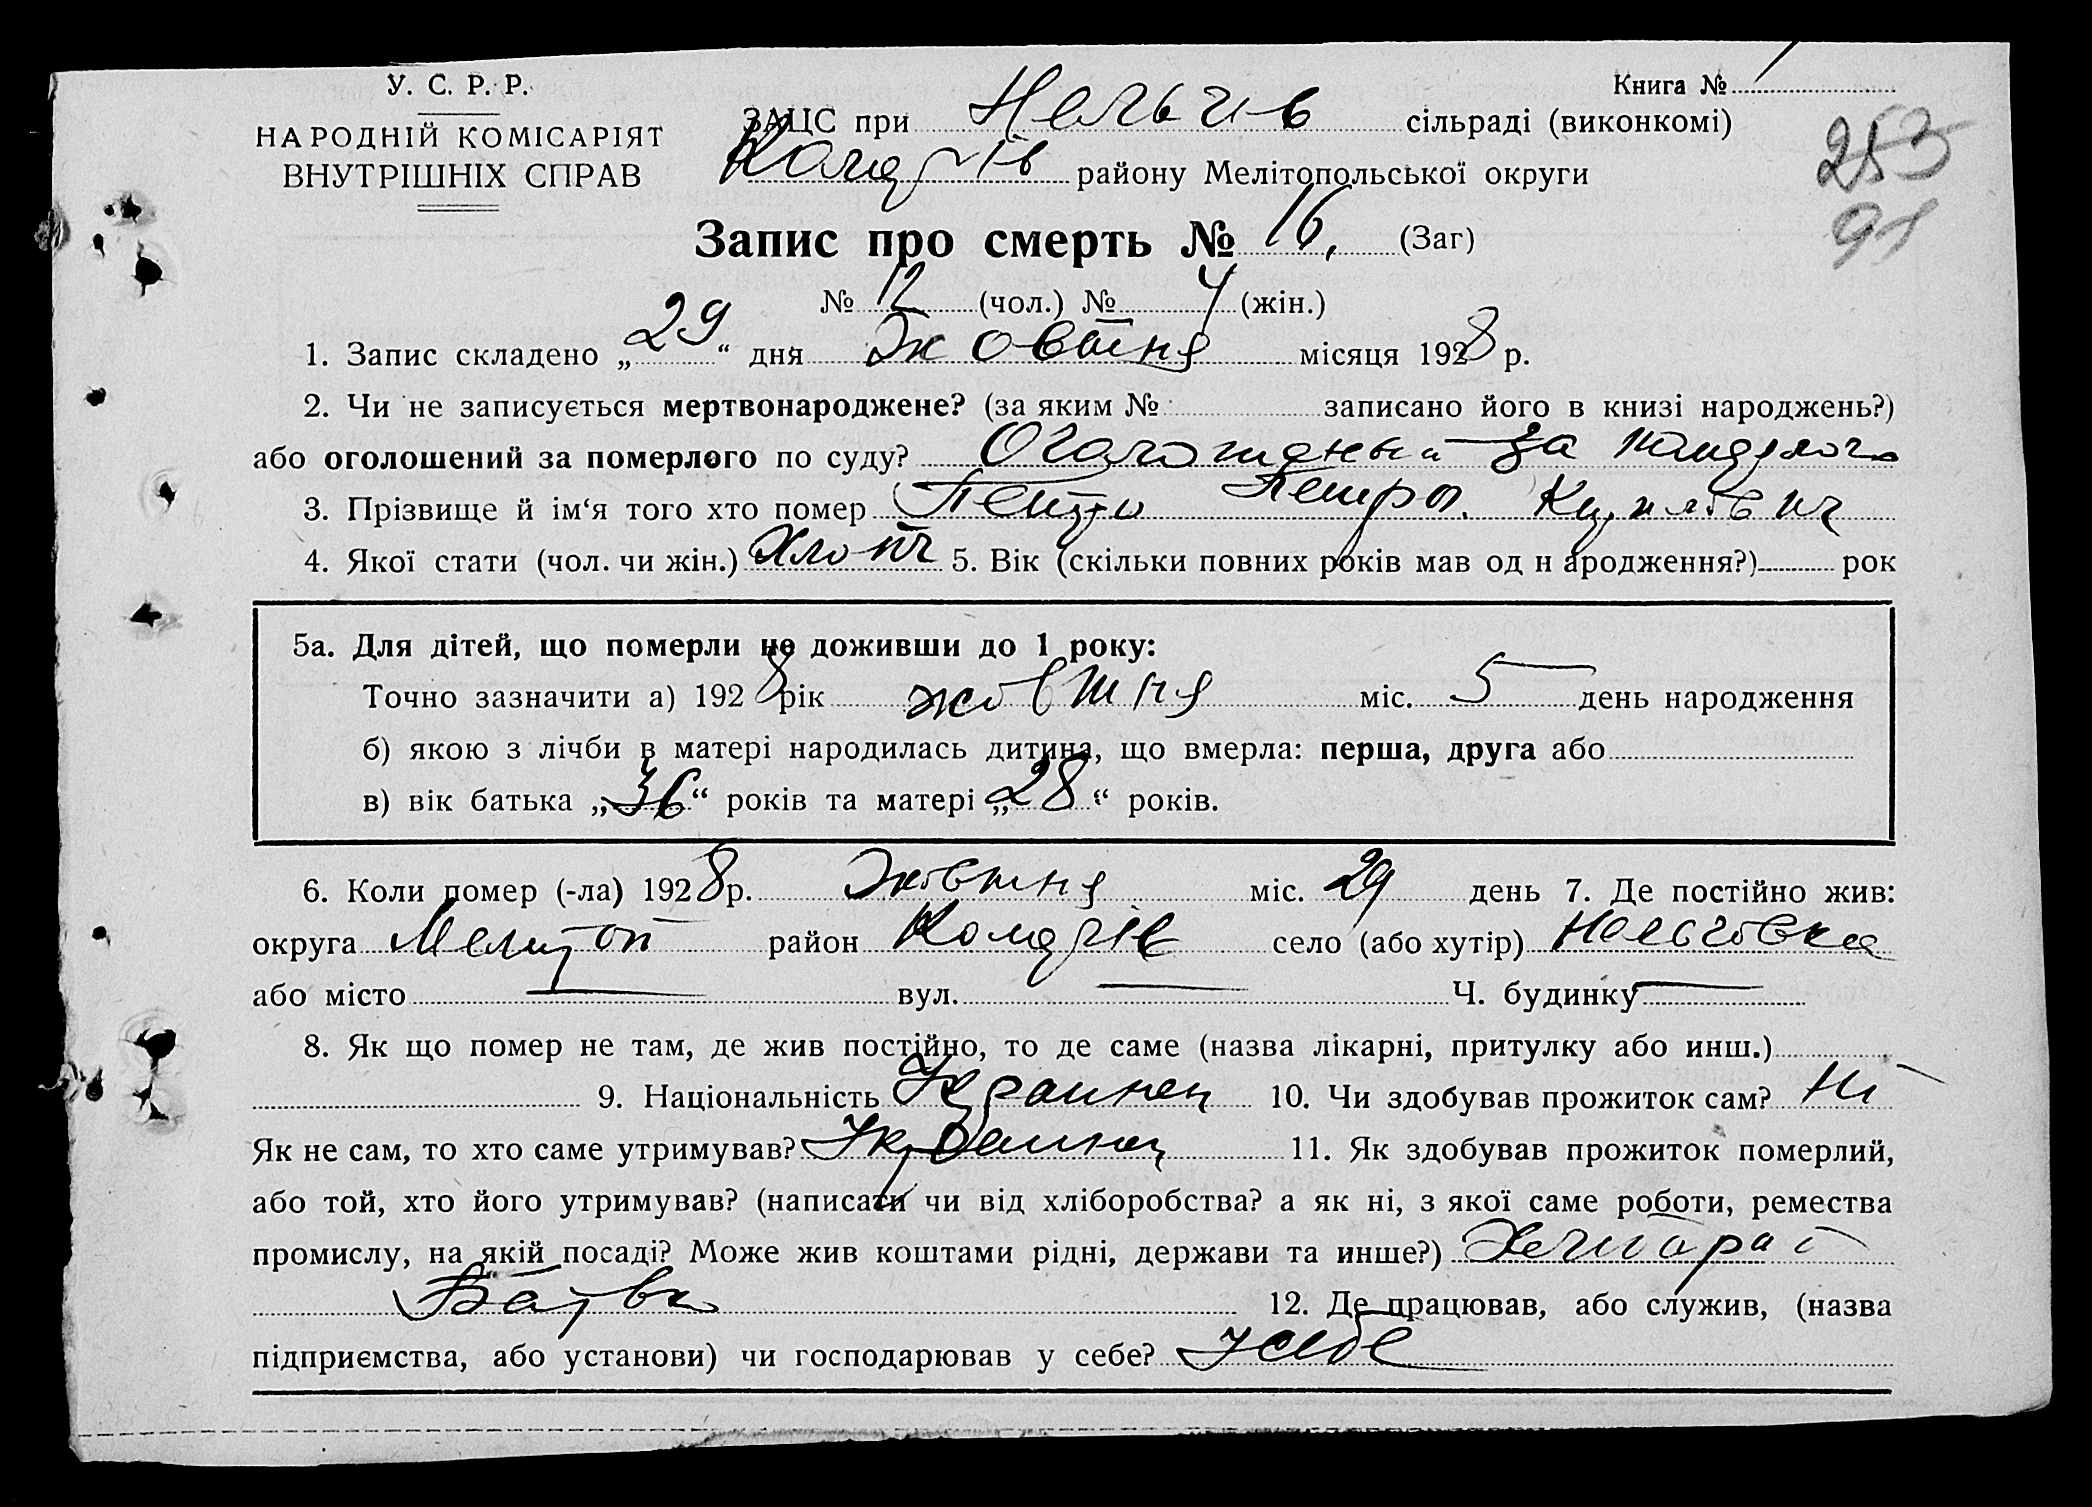 У. С. Р. Р.
НАРОДНІЙ КОМІСАРІЯТ
ВНУТРІШНІХ СПРАВ
Книга № 1
ЗАЦС при Нельгів сільраді (виконкомі)
районy Мелітопольської округи
253
91
Запис про смерть № 16. (Заг)
№ 12 (чол.) № 4 (жін.)
1. Запис складено „29“ дня Жовтня місяця 1928 р.
2. Чи не записується мертвонароджене? (за яким № записано його в книзі народжень?)
або оголошений за померлого по суду? за
3. Прізвище й ім‘я того хто помер Петро
4. Якої стати (чол. чи жін.) Хлопч 5. Вік (скільки повних років мав од н ародження?) рок
5а. Для дітей, що померли не доживши до 1 року:
Точно зазначити а) 1928 рік жовтня міс. 5 день народження
б) якою з лічби в матері народилась дитина, що вмерла: перша, друга або
в) вік батька „36“ років та матері „28“ років.
6. Коли помер (-ла) 1928 р. Жовтня міс. 29 день 7. Де постійно жив:
округа Мелітоп район село (або хутір) Нельговка
або місто — вул. — Ч. будинку —
8. Як що помер не там, де жив постійно, то де саме (назва лікарні, притулку або инш.)
9. Національність Украинец 10. Чи здобував прожиток сам? Ні
Як не сам, то хто саме утримував? Украинец 11. Як здобував прожиток померлий,
або той, хто його утримував? (написати чи від хліборобства? а як ні, з якої саме роботи, ремества
промислу, на якій посаді? Може жив коштами рідні, держави та инше?)
12. Де працював, або служив, (назва
підприємства, або установи) чи господарював у себе? у себе